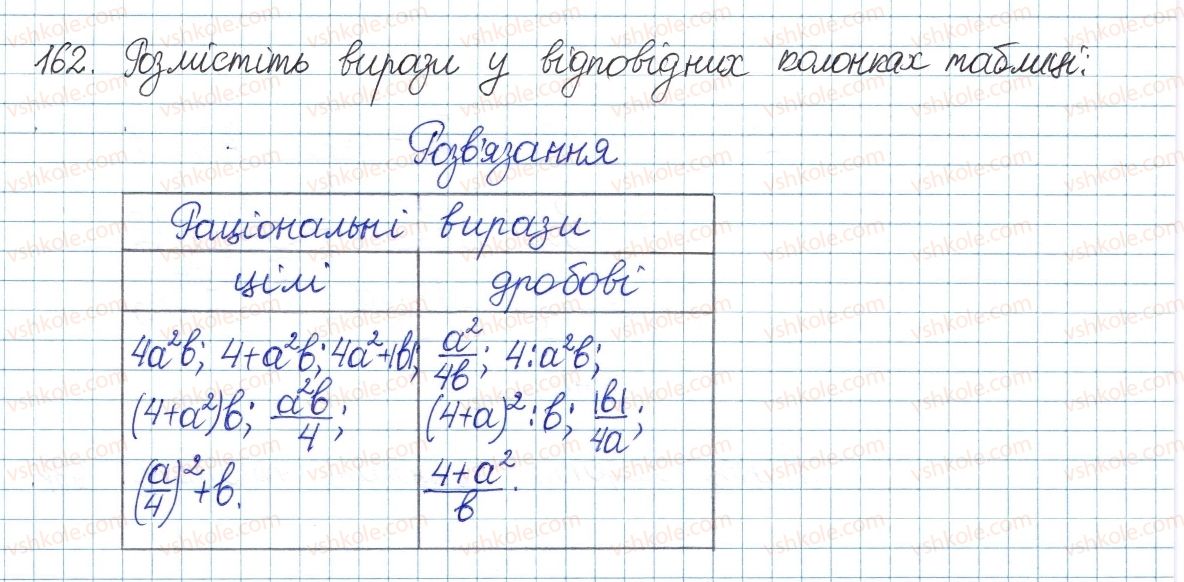 162. Розмістіть вирази у відповідних колонках таблиці:
Розв'язання
Раціональні вирази
цілі
дробові
4a²b; 4+a²b; 4a²+|b|;
(4+a²)b; a²b/4;
(a/4)²+b.
a²/4b; 4:a²b;
(4+a)²:b; |b|/4a;
4+a²/b.